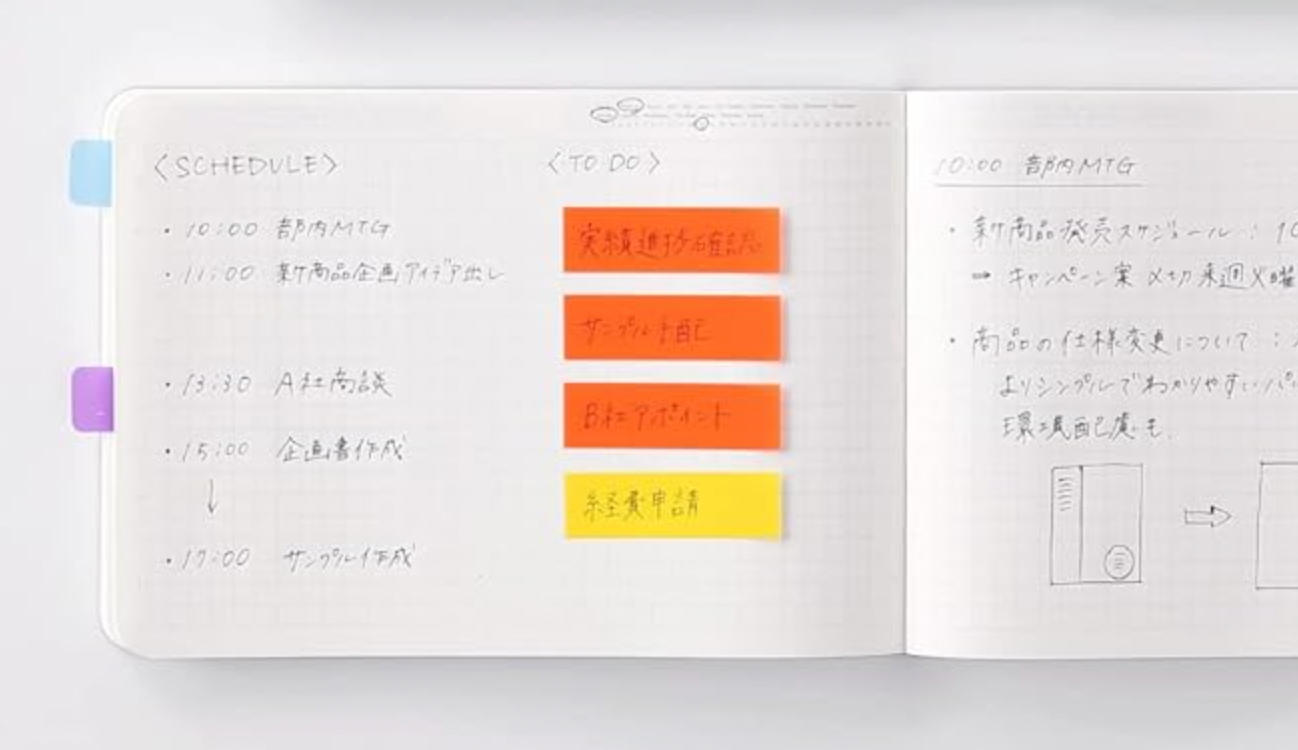 〈SCHEDULE〉
・10:00 部内MTG
・11:00 新商品企画アイデア出し
・13:30 A社商談
・15:00 企画書作成
↓
・17:00 サンプル作成
〈TO DO〉
実績進捗確認
サンプル手配
B社アポイント
経費申請
10:00 部内MTG
・新商品発売スケジュール:10
➡ キャンペーン案 〆切来週火曜
・商品の仕様変更について:
よりシンプルでわかりやすいパ
環境配慮も.